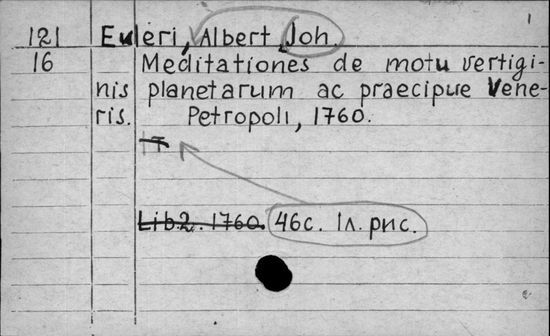 1
121 Euleri, Albert Joh
16 Meditationes de motu vertigi-
nis planetarum ac praecipue Vene-
ris. Petropoli, 1760.
17
Lib.2. 1760. 46с. 1л. рис.